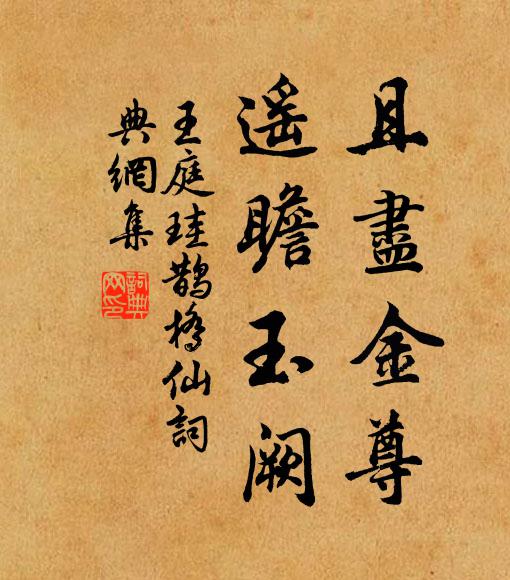 且盡金尊
遥瞻玉阙
王庭珪鹊橋仙詞
典網集
詞典
网印